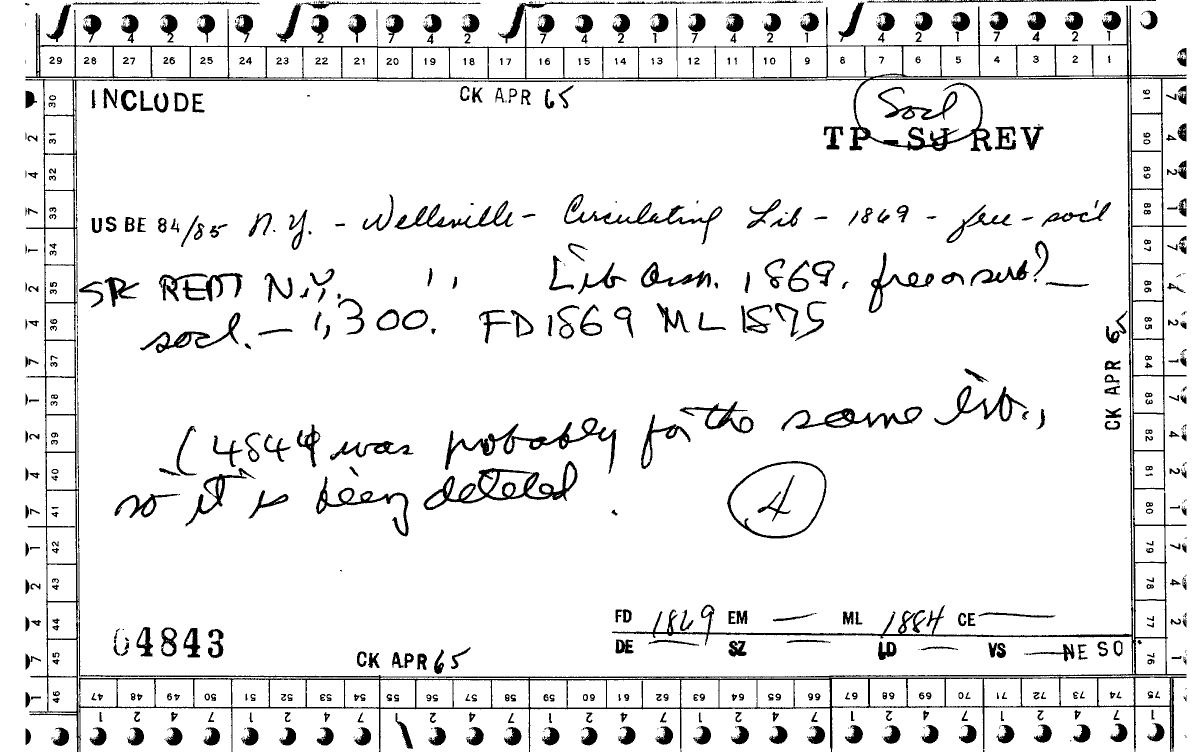 7 4 2 1 7 4 2 1 7 4 2 1 7 4 2 1 7 4 2 1 7 4 2 1 7 4 2 1
29 28 27 26 25 24 23 22 21 20 19 18 17 16 15 14 13 12 11 10 9 8 7 6 5 4 3 2 1
INCLUDE CK APR 65 Socl
TP-SJ REV
US BE 84/85 N.Y. - Wellsville - Circulating Lib - 1869 - free - soc'l
SPC REPT N.Y. " Lib Assn. 1869. free or sub? —
socl. — 1,300. FD 1869 ML 1875
CK APR 65
(4844 was probably for the same lib.,
so it is being deteled.
4
FD 1869 EM — ML 1884 CE —
04843 DE — SZ — LD — VS — NE SO
CK APR 65
30 31 32 33 34 35 36 37 38 39 40 41 42 43 44 45 46
91 90 89 88 87 86 85 84 83 82 81 80 79 78 77 76
47 48 49 50 51 52 53 54 55 56 57 58 59 60 61 62 63 64 65 66 67 68 69 70 71 72 73 74 75